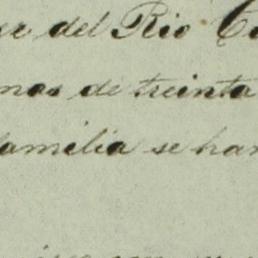 er del Rio
mas de treinta
familia se han